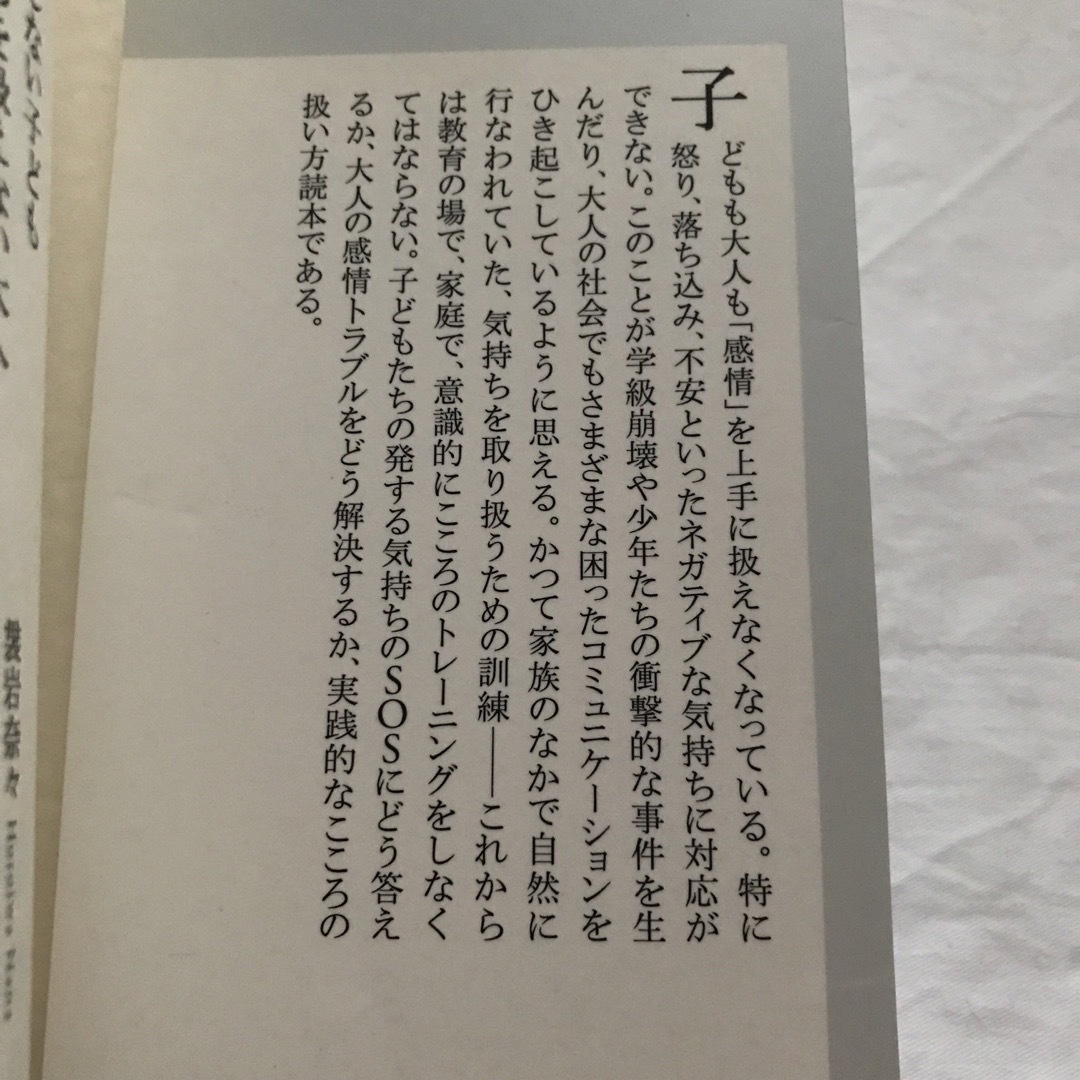 子どもも大人も「感情」を上手に扱えなくなっている。特に
怒り、落ち込み、不安といったネガティブな気持ちに対応が
できない。このことが学級崩壊や少年たちの衝撃的な事件を生
んだり、大人の社会でもさまざまな困ったコミュニケーションを
ひき起こしているように思える。かつて家族のなかで自然に
行なわれていた、気持ちを取り扱うための訓練——これから
は教育の場で、家庭で、意識的にこころのトレーニングをしなく
てはならない。子どもたちの発する気持ちのSOSにどう答え
るか、大人の感情トラブルをどう解決するか、実践的なこころの
扱い方読本である。
ない子ども
岩奈々